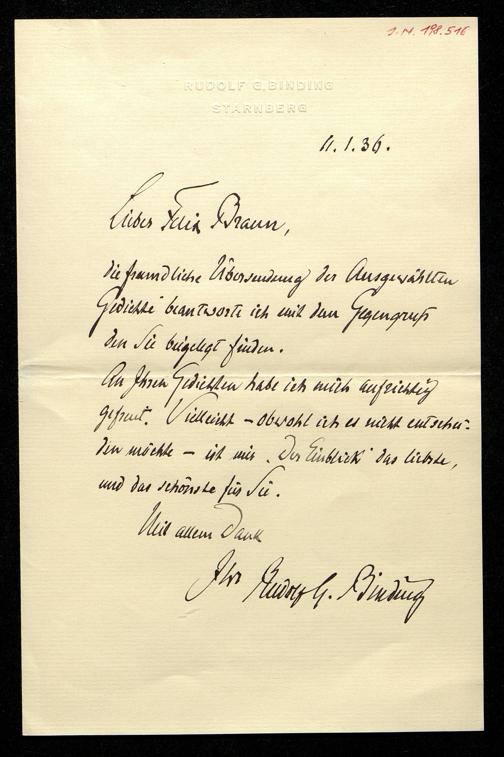 J.N. 198.516
RUDOLF G. BINDING
STARNBERG
11.1.36.
Lieber Felix Braun,
die freundliche Übersendung der Ausgewählten
Gedichte beantworte ich mit dem Gegengruß
den Sie beigelegt finden.
An Ihren Gedichten habe ich mich aufrichtig
gefreut. Vielleicht – obwohl ich es nicht entschei-
den möchte – ist mir „Der Einblick" das liebste,
und das schönste für Sie.
Mit allem Dank
Ihr Rudolf G. Binding